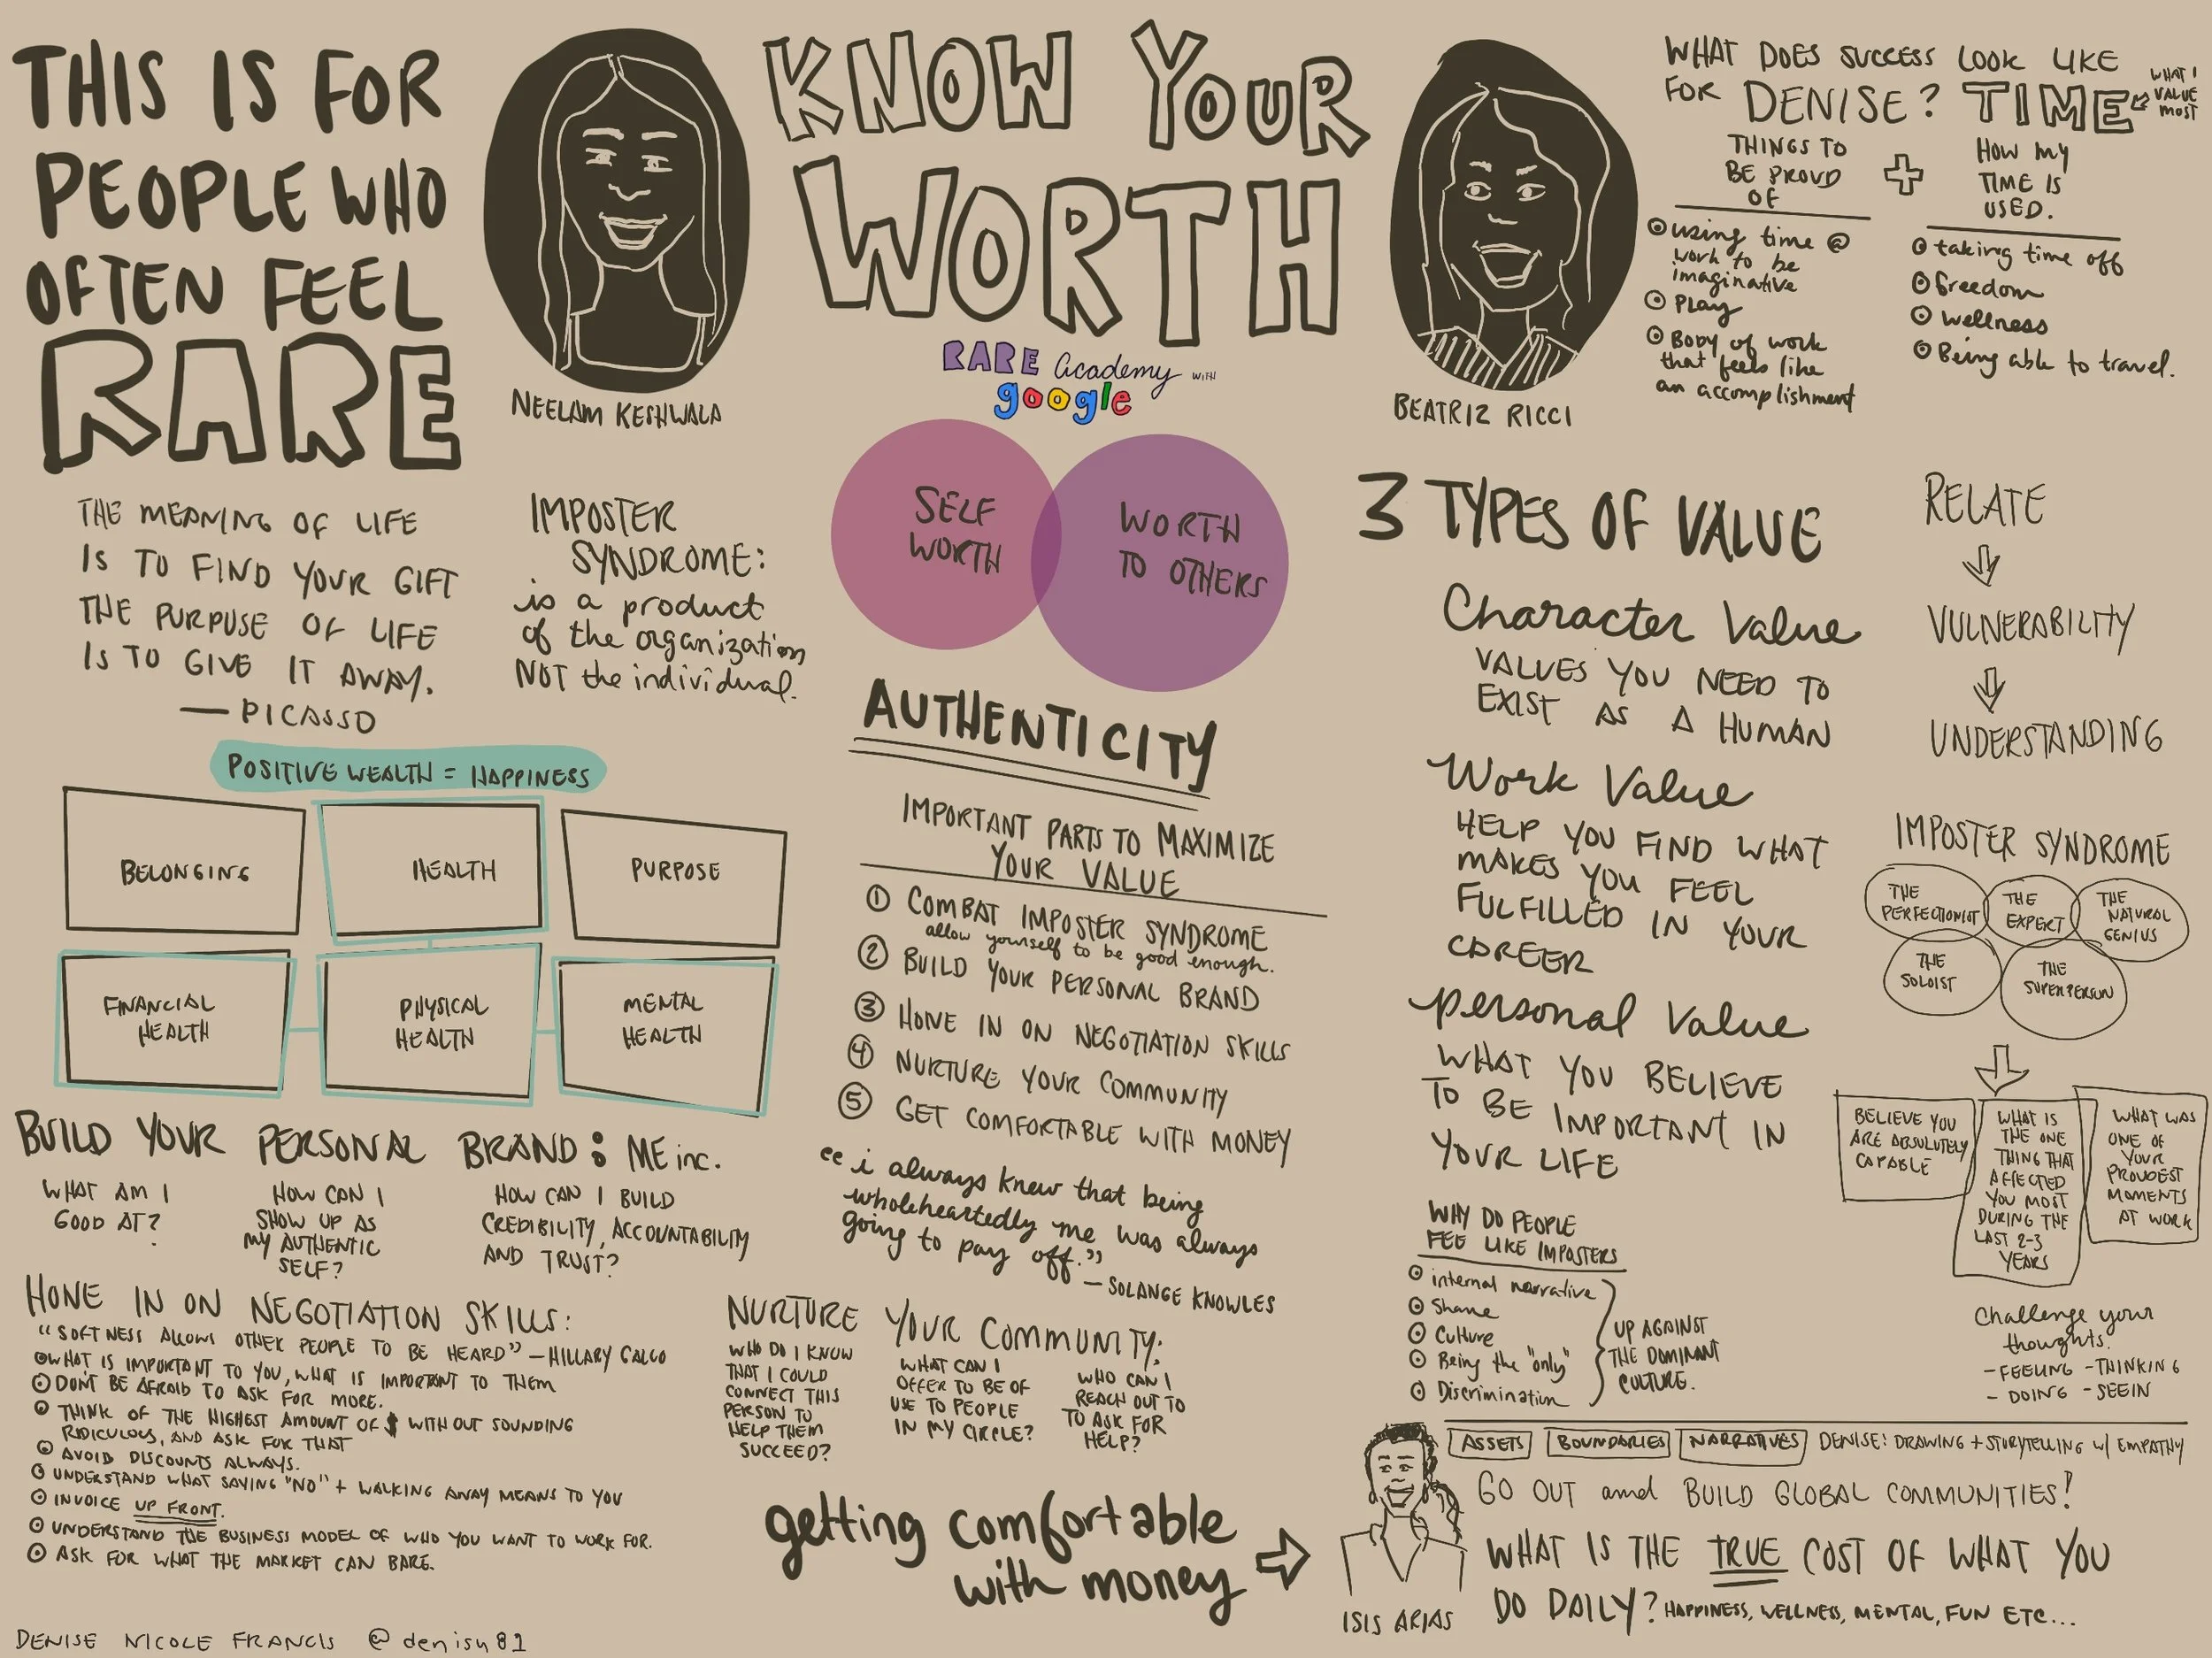 THIS IS FOR
PEOPLE WHO
OFTEN FEEL
RARE
NEELAM KESHWALA
KNOW YOUR
WORTH
RARE academy WITH
google
BEATRIZ RICCI
WHAT DOES SUCCESS LOOK LIKE
FOR DENISE? TIME
WHAT I
VALUE
MOST
THINGS TO
BE PROUD
OF
using time @
work to be
imaginative
Play
Body of work
that feels like
an accomplishment
+
HOW MY
TIME IS
USED.
taking time off
freedom
wellness
Being able to travel.
THE MEANING OF LIFE
IS TO FIND YOUR GIFT
THE PURPUSE OF LIFE
IS TO GIVE IT AWAY.
— PICASSO
IMPOSTER
SYNDROME:
is a product
of the organization
NOT the individual.
SELF
WORTH
WORTH
TO OTHERS
POSITIVE WEALTH = HAPPINESS
BELONGING
HEALTH
PURPOSE
FINANCIAL
HEALTH
PHYSICAL
HEALTH
MENTAL
HEALTH
AUTHENTICITY
IMPORTANT PARTS TO MAXIMIZE
YOUR VALUE
① COMBAT IMPOSTER SYNDROME
allow yourself to be good enough.
② BUILD YOUR PERSONAL BRAND
③ HONE IN ON NEGOTIATION SKILLS
④ NURTURE YOUR COMMUNITY
⑤ GET COMFORTABLE WITH MONEY
“i always knew that being
wholeheartedly me was always
going to pay off.”
— SOLANGE KNOWLES
3 TYPES OF VALUE
Character Value
VALUES YOU NEED TO
EXIST AS A HUMAN
Work Value
HELP YOU FIND WHAT
MAKES YOU FEEL
FULFILLED IN YOUR
CAREER
personal Value
WHAT YOU BELIEVE
TO BE IMPORTANT IN
YOUR LIFE
RELATE
VULNERABILITY
UNDERSTANDING
IMPOSTER SYNDROME
THE
PERFECTIONIST
THE
EXPERT
THE
NATURAL
GENIUS
THE
SOLOIST
THE
SUPERPERSON
BELIEVE YOU
ARE ABSOLUTELY
CAPABLE
WHAT IS
THE ONE
THING THAT
AFFECTED
YOU MOST
DURING THE
LAST 2-3
YEARS
WHAT WAS
ONE OF
YOUR
PROUDEST
MOMENTS
AT WORK
Challenge your
thoughts.
- FEELING - THINKING
- DOING - SEEIN
WHY DO PEOPLE
FEE LIKE IMPOSTERS
internal narrative
Shame
Culture
Being the "only"
Discrimination
UP AGAINST
THE DOMINANT
CULTURE.
BUILD YOUR PERSONAL BRAND: ME inc.
WHAT AM I
GOOD AT?
HOW CAN I
SHOW UP AS
MY AUTHENTIC
SELF?
HOW CAN I BUILD
CREDIBILITY, ACCOUNTABILITY
AND TRUST?
HONE IN ON NEGOTIATION SKILLS:
"SOFTNESS ALLOWS OTHER PEOPLE TO BE HEARD" — HILLARY GALLO
WHAT IS IMPORTANT TO YOU, WHAT IS IMPORTANT TO THEM
DON'T BE AFRAID TO ASK FOR MORE.
THINK OF THE HIGHEST AMOUNT OF $ WITHOUT SOUNDING
RIDICULOUS, AND ASK FOR THAT
AVOID DISCOUNTS ALWAYS.
UNDERSTAND WHAT SAYING "NO" + WALKING AWAY MEANS TO YOU
INVOICE UP FRONT.
UNDERSTAND THE BUSINESS MODEL OF WHO YOU WANT TO WORK FOR.
ASK FOR WHAT THE MARKET CAN BARE.
NURTURE YOUR COMMUNITY:
WHO DO I KNOW
THAT I COULD
CONNECT THIS
PERSON TO
HELP THEM
SUCCEED?
WHAT CAN I
OFFER TO BE OF
USE TO PEOPLE
IN MY CIRCLE?
WHO CAN I
REACH OUT TO
TO ASK FOR
HELP?
getting comfortable
with money
ISIS ARIAS
ASSETS BOUNDARIES NARRATIVES DENISE: DRAWING + STORYTELLING W/ EMPATHY
GO OUT and BUILD GLOBAL COMMUNITIES!
WHAT IS THE TRUE COST OF WHAT YOU
DO DAILY? HAPPINESS, WELLNESS, MENTAL, FUN ETC...
DENISE NICOLE FRANCIS @denisn81